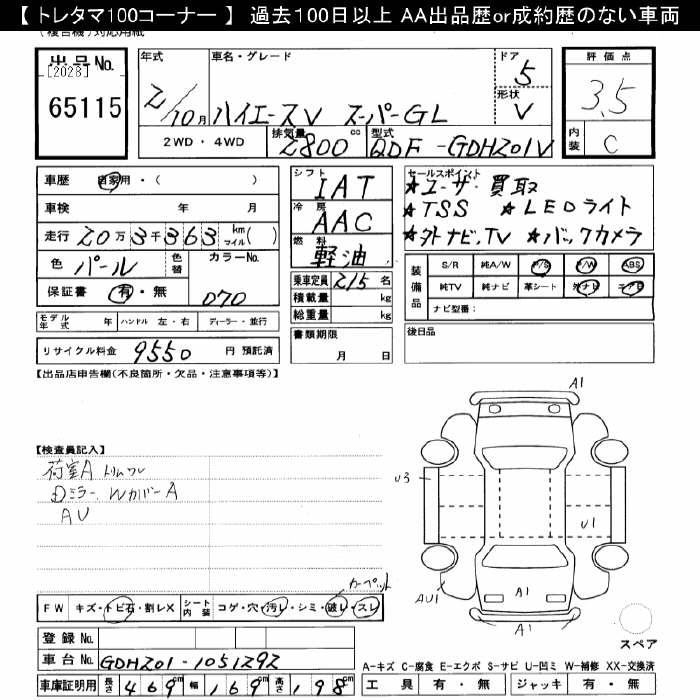 【 トレタマ100コーナー 】 過去100日以上 AA出品歴or成約歴のない車両
出品No.
[2028]
65115
年式
Z/10月
車名・グレード
ハイエースV スーパーGL
ドア
5
形状
V
評価点
3.5
内装
C
2WD・4WD
排気量
2800 cc
型式
QDF-GDH201V
車歴 自家用・( )
車検 年 月
走行 20万3千363 km マイル( )
色 パール 色替 カラーNo.
070
保証書 有・無
モデル年式 年 ハンドル 左・右 ディーラー・並行
リサイクル料金 9550 円 預託済
シフト
IAT
冷房
AAC
燃料
軽油
乗車定員 2/5 名
積載量 kg
総重量 kg
書類期限
月 日
セールスポイント
★ユーザー買取
★TSS ★LEDライト
★外ナビ、TV ★バックカメラ
装備品
S/R 純A/W P/S P/W ABS
純TV 純ナビ 革シート 外ナビ エアB
ナビ型番:
後日品
【出品店申告欄(不良箇所・欠品・注意事項等)】
【検査員記入】
荷室A トリムワレ
Dミラー Wカバー A
AU
A1
U3
U1
A1
AU1
A1
スペア
カーペット
FW キズ・トビ石・割レX シート内装 コゲ・穴・汚レ・シミ・破レ・スレ
登録No.
車台No. GDH201-1051292
車庫証明用 長さ 469cm 幅 169cm 高さ 198cm
A-キズ C-腐食 E-エクボ S-サビ U-凹ミ W-補修 XX-交換済
工具 有・無 ジャッキ 有・無